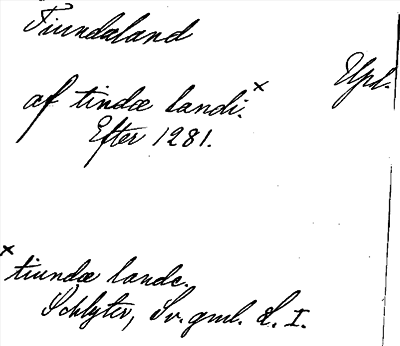 Tiundaland
Upl.
af tindæ landi.x
Efter 1281.
x tiundæ lande.
Schlyter, Sv. gml. L. I.